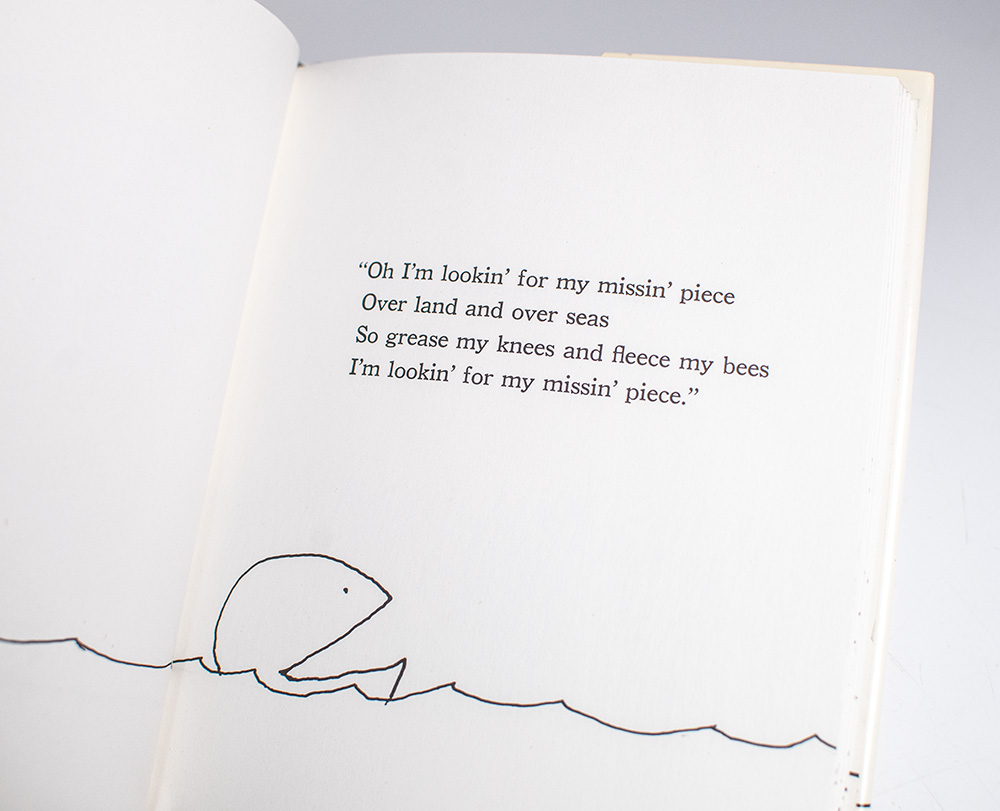 “Oh I’m lookin’ for my missin’ piece
Over land and over seas
So grease my knees and fleece my bees
I’m lookin’ for my missin’ piece.”